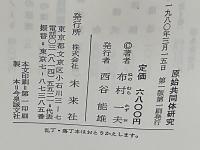 原始共同体研究
一九八〇年三月一五日 第一版第一刷発行
定価 六八〇〇円
©著者 布村一夫
発行者 西谷能雄
発行所 株式会社 未来社
東京都文京区小石川三ノ七
電話〇三(八一四)五五二一代表
振替・東京七―八七三八五番
本文印刷＝第一印刷
製本＝今泉誠文社
乱丁・落丁本はおとりかえします。